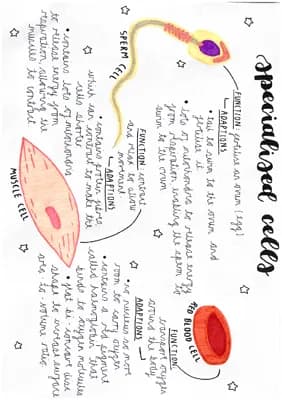 specialised cells
SPERM CELL
FUNCTION: fertilise an ovum (egg)
ADAPTIONS
• tail to swim to the ovum and
fertilise it
• lots of mitochondria to release energy
from respiration, enabling the sperm to
swim to the ovum
RED BLOOD CELL
FUNCTION:
transport oxygen
around the body
ADAPTIONS
• no nucleus so more
room to carry oxygen
• contains a red pigment
called haemoglobin that
binds to oxygen molecules
• flat bi-concave disc
shape to increase surface
area-to-volume ratio
MUSCLE CELL
FUNCTION: contract
and relax to allow
movement
ADAPTIONS
• contains protein fibres
which can contract to make the
cells shorter
• contains lots of mitochondria
to release energy from
respiration, allowing the
muscles to contract